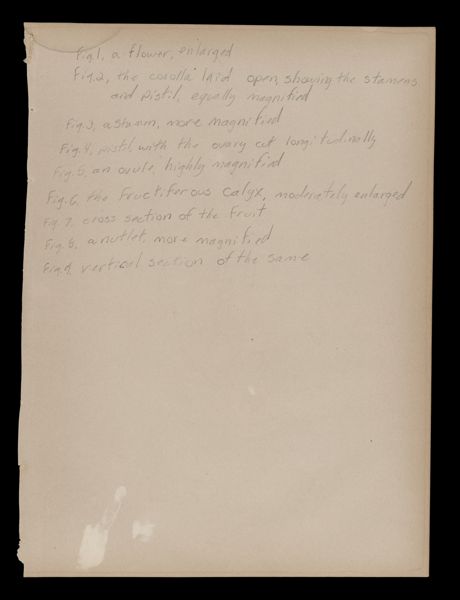 Fig. 1, a flower, enlarged
Fig. 2, the corolla laid open, showing the stamens
and pistil, equally magnified
Fig. 3, a stamen, more magnified
Fig. 4, pistil, with the ovary cut longitudinally
Fig. 5, an ovule, highly magnified
Fig. 6, the Fructiferous Calyx, moderately enlarged
Fig. 7. cross section of the fruit
Fig. 8. a nutlet, more magnified
Fig. 9. vertical section of the same